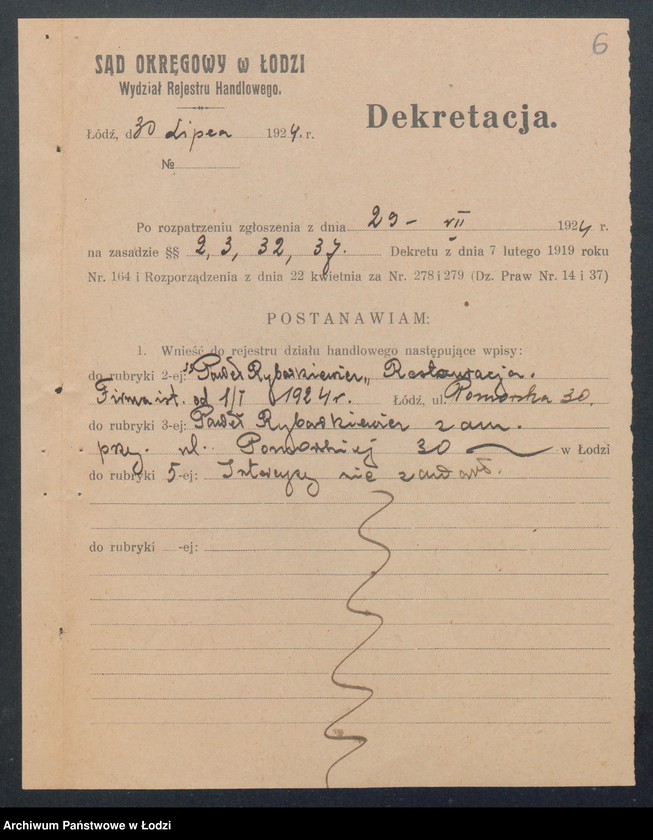 6
SĄD OKRĘGOWY w ŁODZI
Wydział Rejestru Handlowego.
Dekretacja.
Łódź, d. 30 Lipca 1924. r.
№
Po rozpatrzeniu zgłoszenia z dnia 29 - VII 1924 r.
na zasadzie §§ 2, 3, 32, 37. Dekretu z dnia 7 lutego 1919 roku
Nr. 164 i Rozporządzenia z dnia 22 kwietnia za Nr. 278 i 279 (Dz. Praw Nr. 14 i 37)
POSTANAWIAM:
1. Wnieść do rejestru działu handlowego następujące wpisy:
do rubryki 2-ej: „Paweł Rybarkiewicz„ Restauracja.
Firma ist. od 1/I 1924 r. Łódź, ul. Pomorska 30.
do rubryki 3-ej: Paweł Rybarkiewicz zam.
przy. ul. Pomorskiej 30 w Łodzi
do rubryki 5-ej: Intercyzy nie zawarł.
do rubryki -ej:
Archiwum Państwowe w Łodzi